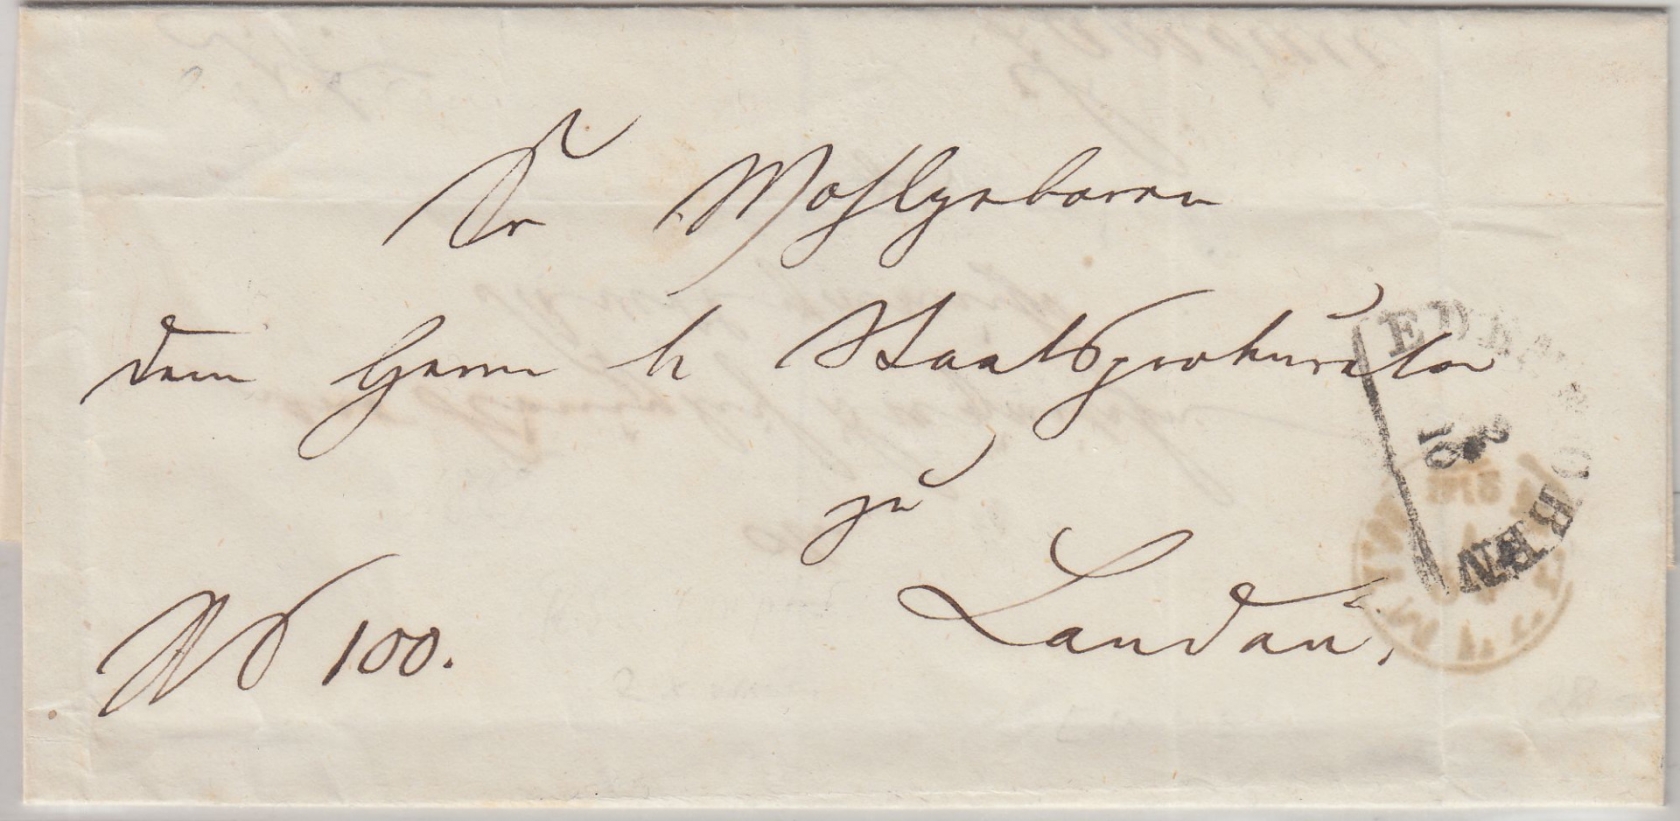 Sr Wohlgeboren
dem Herrn k Staatsprokurator
zu
Landau.
No 100.
EDENKOBEN
10
2